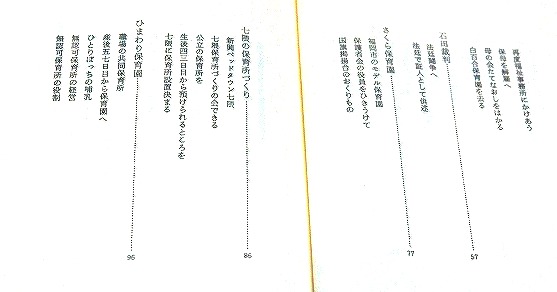 再度福祉事務所にかけあう
保母を解雇へ
母の会たてなおしをはかる
白百合保育園を去る
石田裁判 57
法廷闘争へ
法廷で証人として供述
さくら保育園 77
福岡市のモデル保育園
保護者会の役員をひきうけて
国旗掲揚台のおくりもの
七隈の保育所づくり 86
新興ベッドタウン七隈
七隈保育所づくりの会できる
公立の保育所を
生後四三日目から預けられるところを
七隈に保育所設置決まる
ひまわり保育園 96
職場の共同保育所
産後五七日目から保育園へ
ひとりぼっちの哺乳
無認可保育所の経営
無認可保育所の役割